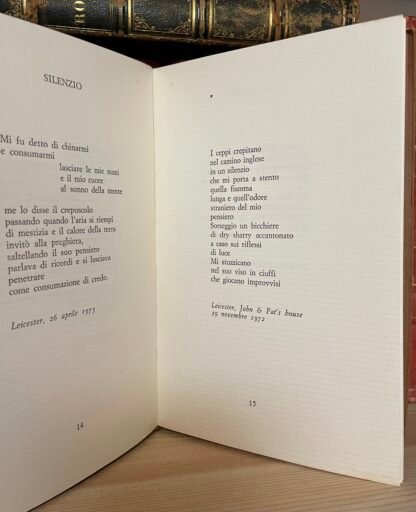 SILENZIO
Mi fu detto di chinarmi
e consumarmi
lasciare le mie mani
e il mio cuore
al sonno della mente
me lo disse il crepuscolo
passando quando l'aria si riempì
di mestizia e il calore della terra
invitò alla preghiera,
saltellando il suo pensiero
parlava di ricordi e si lasciava
penetrare
come consumazione di credo.
Leicester, 26 aprile 1973
14
*
I ceppi crepitano
nel camino inglese
in un silenzio
che mi porta a stento
quella fiamma
lunga e quell'odore
straniero del mio
pensiero
Sorseggio un bicchiere
di dry sharry accantonato
a caso sui riflessi
di luce
Mi stuzzicano
nel suo viso in ciuffi
che giocano improvvisi
Leicester, John & Pat's house
29 novembre 1972
15